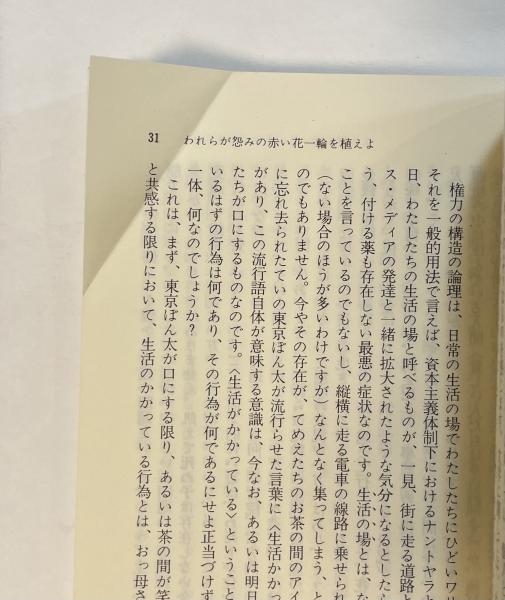 31 われらが怨みの赤い花一輪を植えよ
権力の構造の論理は、日常の生活の場でわたしたちにひどいワリ
それを一般的用法で言えば、資本主義体制下におけるナントヤラと
日、わたしたちの生活の場と呼べるものが、一見、街に走る道路と
ス・メディアの発達と一緒に拡大されたような気分になるとしたら
う、付ける薬も存在しない最悪の症状なのです。生活の場とは、な
ことを言っているのでもないし、縦横に走る電車の線路に乗せられ
(ない場合のほうが多いわけですが)なんとなく集ってしまう、と
のでもありません。今やその存在が、てめえたちのお茶の間のアイ
に忘れ去られたていの東京ぼん太が流行らせた言葉に〈生活かかっ
があり、この流行語自体が意味する意識は、今なお、あるいは明日
たちが口にするものなのです。〈生活がかかっている〉ということ
いるはずの行為は何であり、その行為が何であるにせよ正当づけず
一体、何なのでしょうか?
これは、まず、東京ぼん太が口にする限り、あるいは茶の間が笑
と共感する限りにおいて、生活のかかっている行為とは、おっ母さ